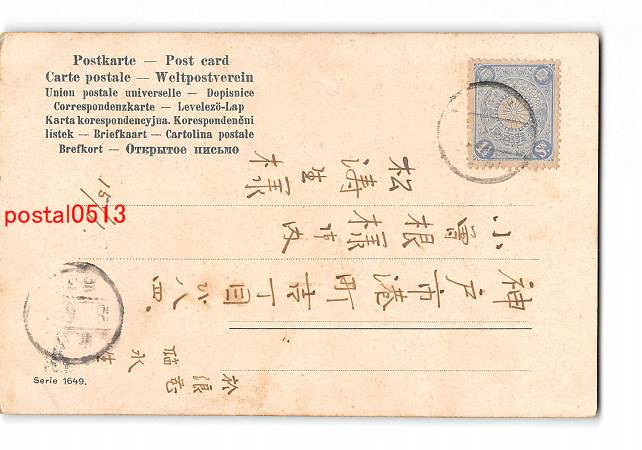 Postkarte — Post card
Carte postale — Weltpostverein
Union postale universelle — Dopisnice
Correspondenzkarte — Levelező-Lap
Karta korespondencyjna. Korespondenční
lístek — Briefkaart — Cartolina postale
Brefkort — Открытое письмо
postal0513
神戸市港町 丁目 八四
小曽根様市内
松涛生様
於浪花
水生
Serie 1649.